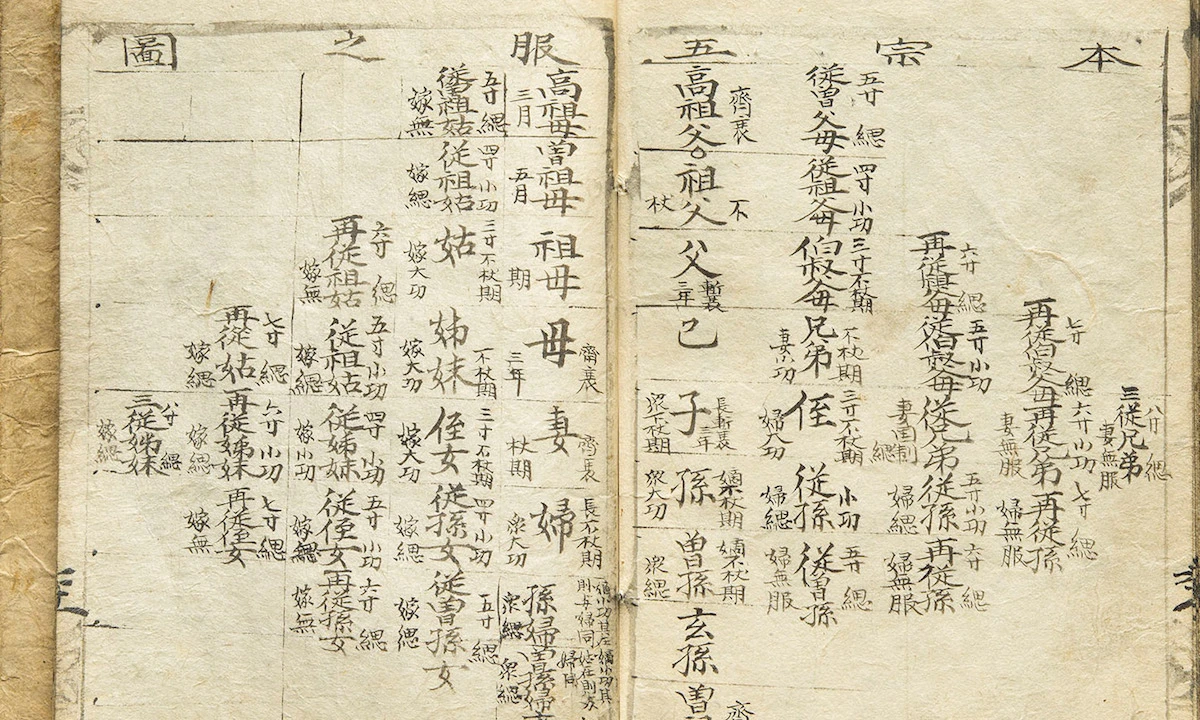 本宗五服之圖
三從兄弟
八寸 緦
妻無服
再從伯叔父母
七寸 緦
再從兄弟
六寸 小功
妻無服
再從孫
七寸 緦
婦無服
六寸 緦
五寸 小功
從伯叔父母
從兄弟
妻 緦
從孫
五寸 小功
婦緦
再從孫
六寸 緦
婦無服
從曾父母
五寸 緦
從祖父母
四寸 小功
伯叔父母
三寸 不杖期
兄弟
不杖期
妻小功
侄
三寸 不杖期
婦大功
從孫
小功
婦緦
從曾孫
五寸 緦
婦無服
高祖父
齊衰
祖父
不
杖
父
斬衰
三年
己
子
長斬衰
三年
衆杖期
孫
嫡不杖期
衆大功
曾孫
嫡不杖期
衆緦
玄孫
曾
齊
高祖母
三月
曾祖母
五月
祖母
期
母
齊衰
三年
妻
齊衰
杖期
婦
長不杖期
衆大功
孫婦
衆緦
衆緦
從曾祖姑
五寸 緦
嫁無
從祖姑
四寸 小功
嫁緦
姑
三寸 不杖期
嫁大功
姊妹
不杖期
嫁大功
侄女
三寸 不杖期
嫁大功
從孫女
四寸 小功
嫁緦
從曾孫女
五寸 緦
嫁緦
再從祖姑
六寸 緦
嫁無
從祖姑
五寸 小功
嫁緦
從姊妹
四寸 小功
嫁小功
從侄女
五寸 小功
嫁緦
再從孫女
六寸 緦
嫁無
再從姑
七寸 緦
嫁緦
再從姊妹
六寸 小功
嫁緦
再從侄女
七寸 緦
嫁無
三從姊妹
八寸 緦
嫁緦